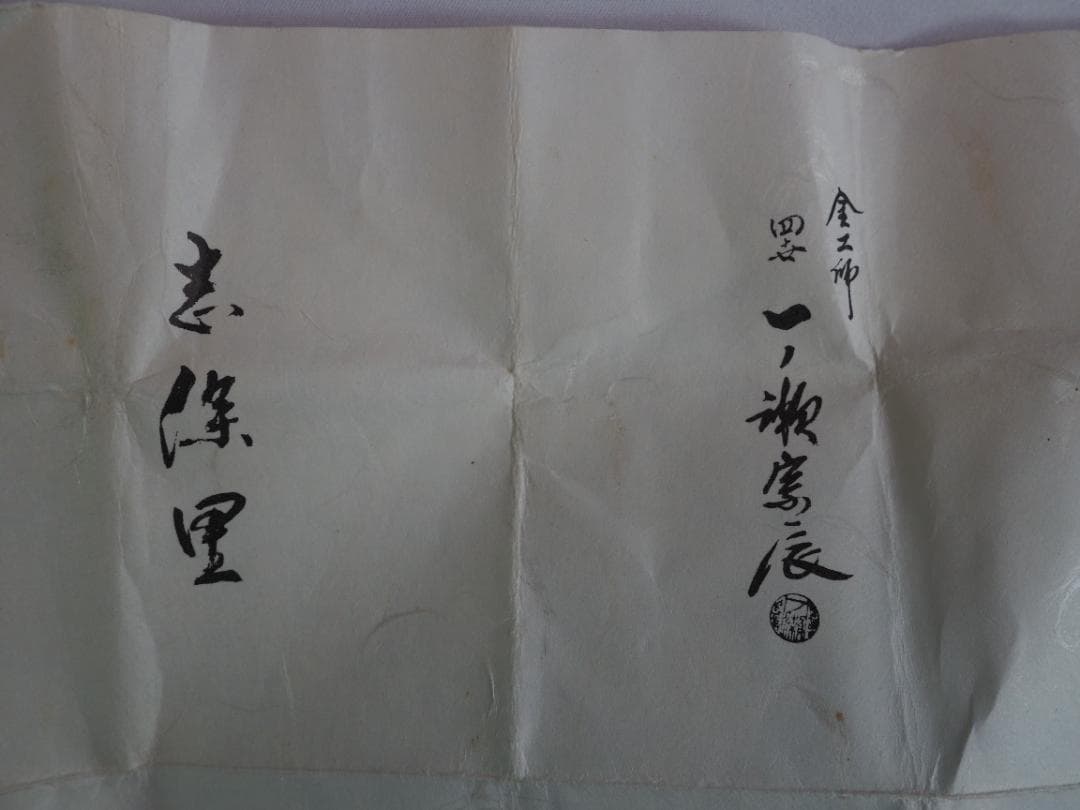 金工師
四世 一ノ瀬宗辰
志保里